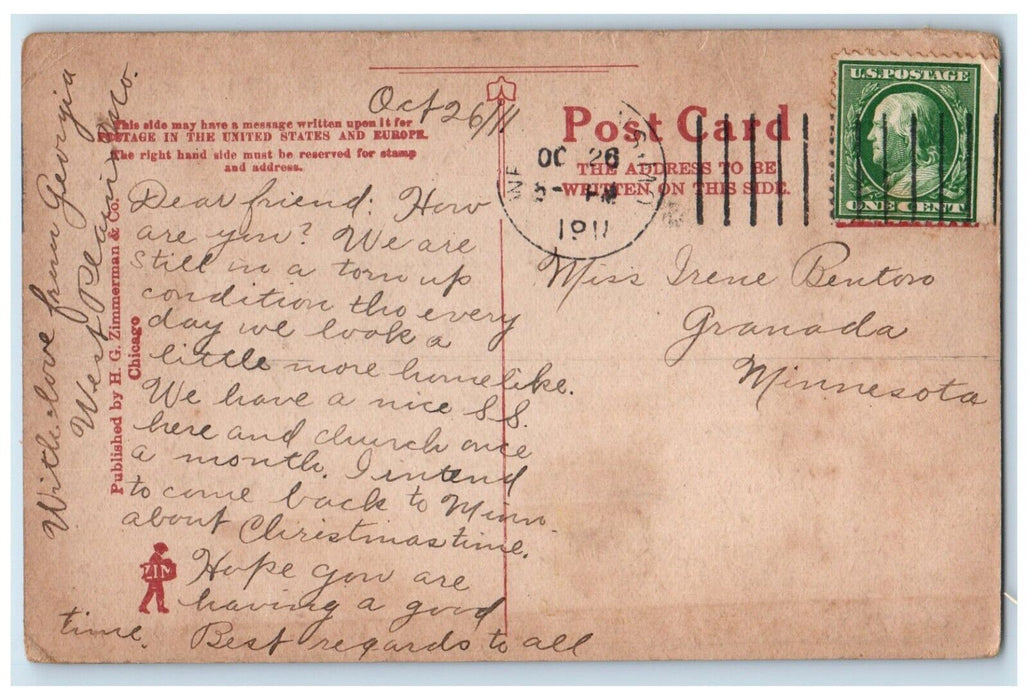 This side may have a message written upon it for
POSTAGE IN THE UNITED STATES AND EUROPE.
The right hand side must be reserved for stamp
and address.
Post Card
THE ADDRESS TO BE
WRITTEN ON THIS SIDE.
U.S. POSTAGE
ONE CENT
OC 26
5- PM
1911
Oct 26/11
Dear friend: How
are you? We are
still in a torn up
condition tho every
day we look a
little more homelike.
We have a nice S.S.
here and church once
a month. I intend
to come back to Minn.
about Christmastime.
Hope you are
having a good
time. Best regards to all
With love from Georgia
West Plains, Mo.
Miss Irene Benton
Granada
Minnesota
Published by H. G. Zimmerman & Co.
Chicago
ZIM